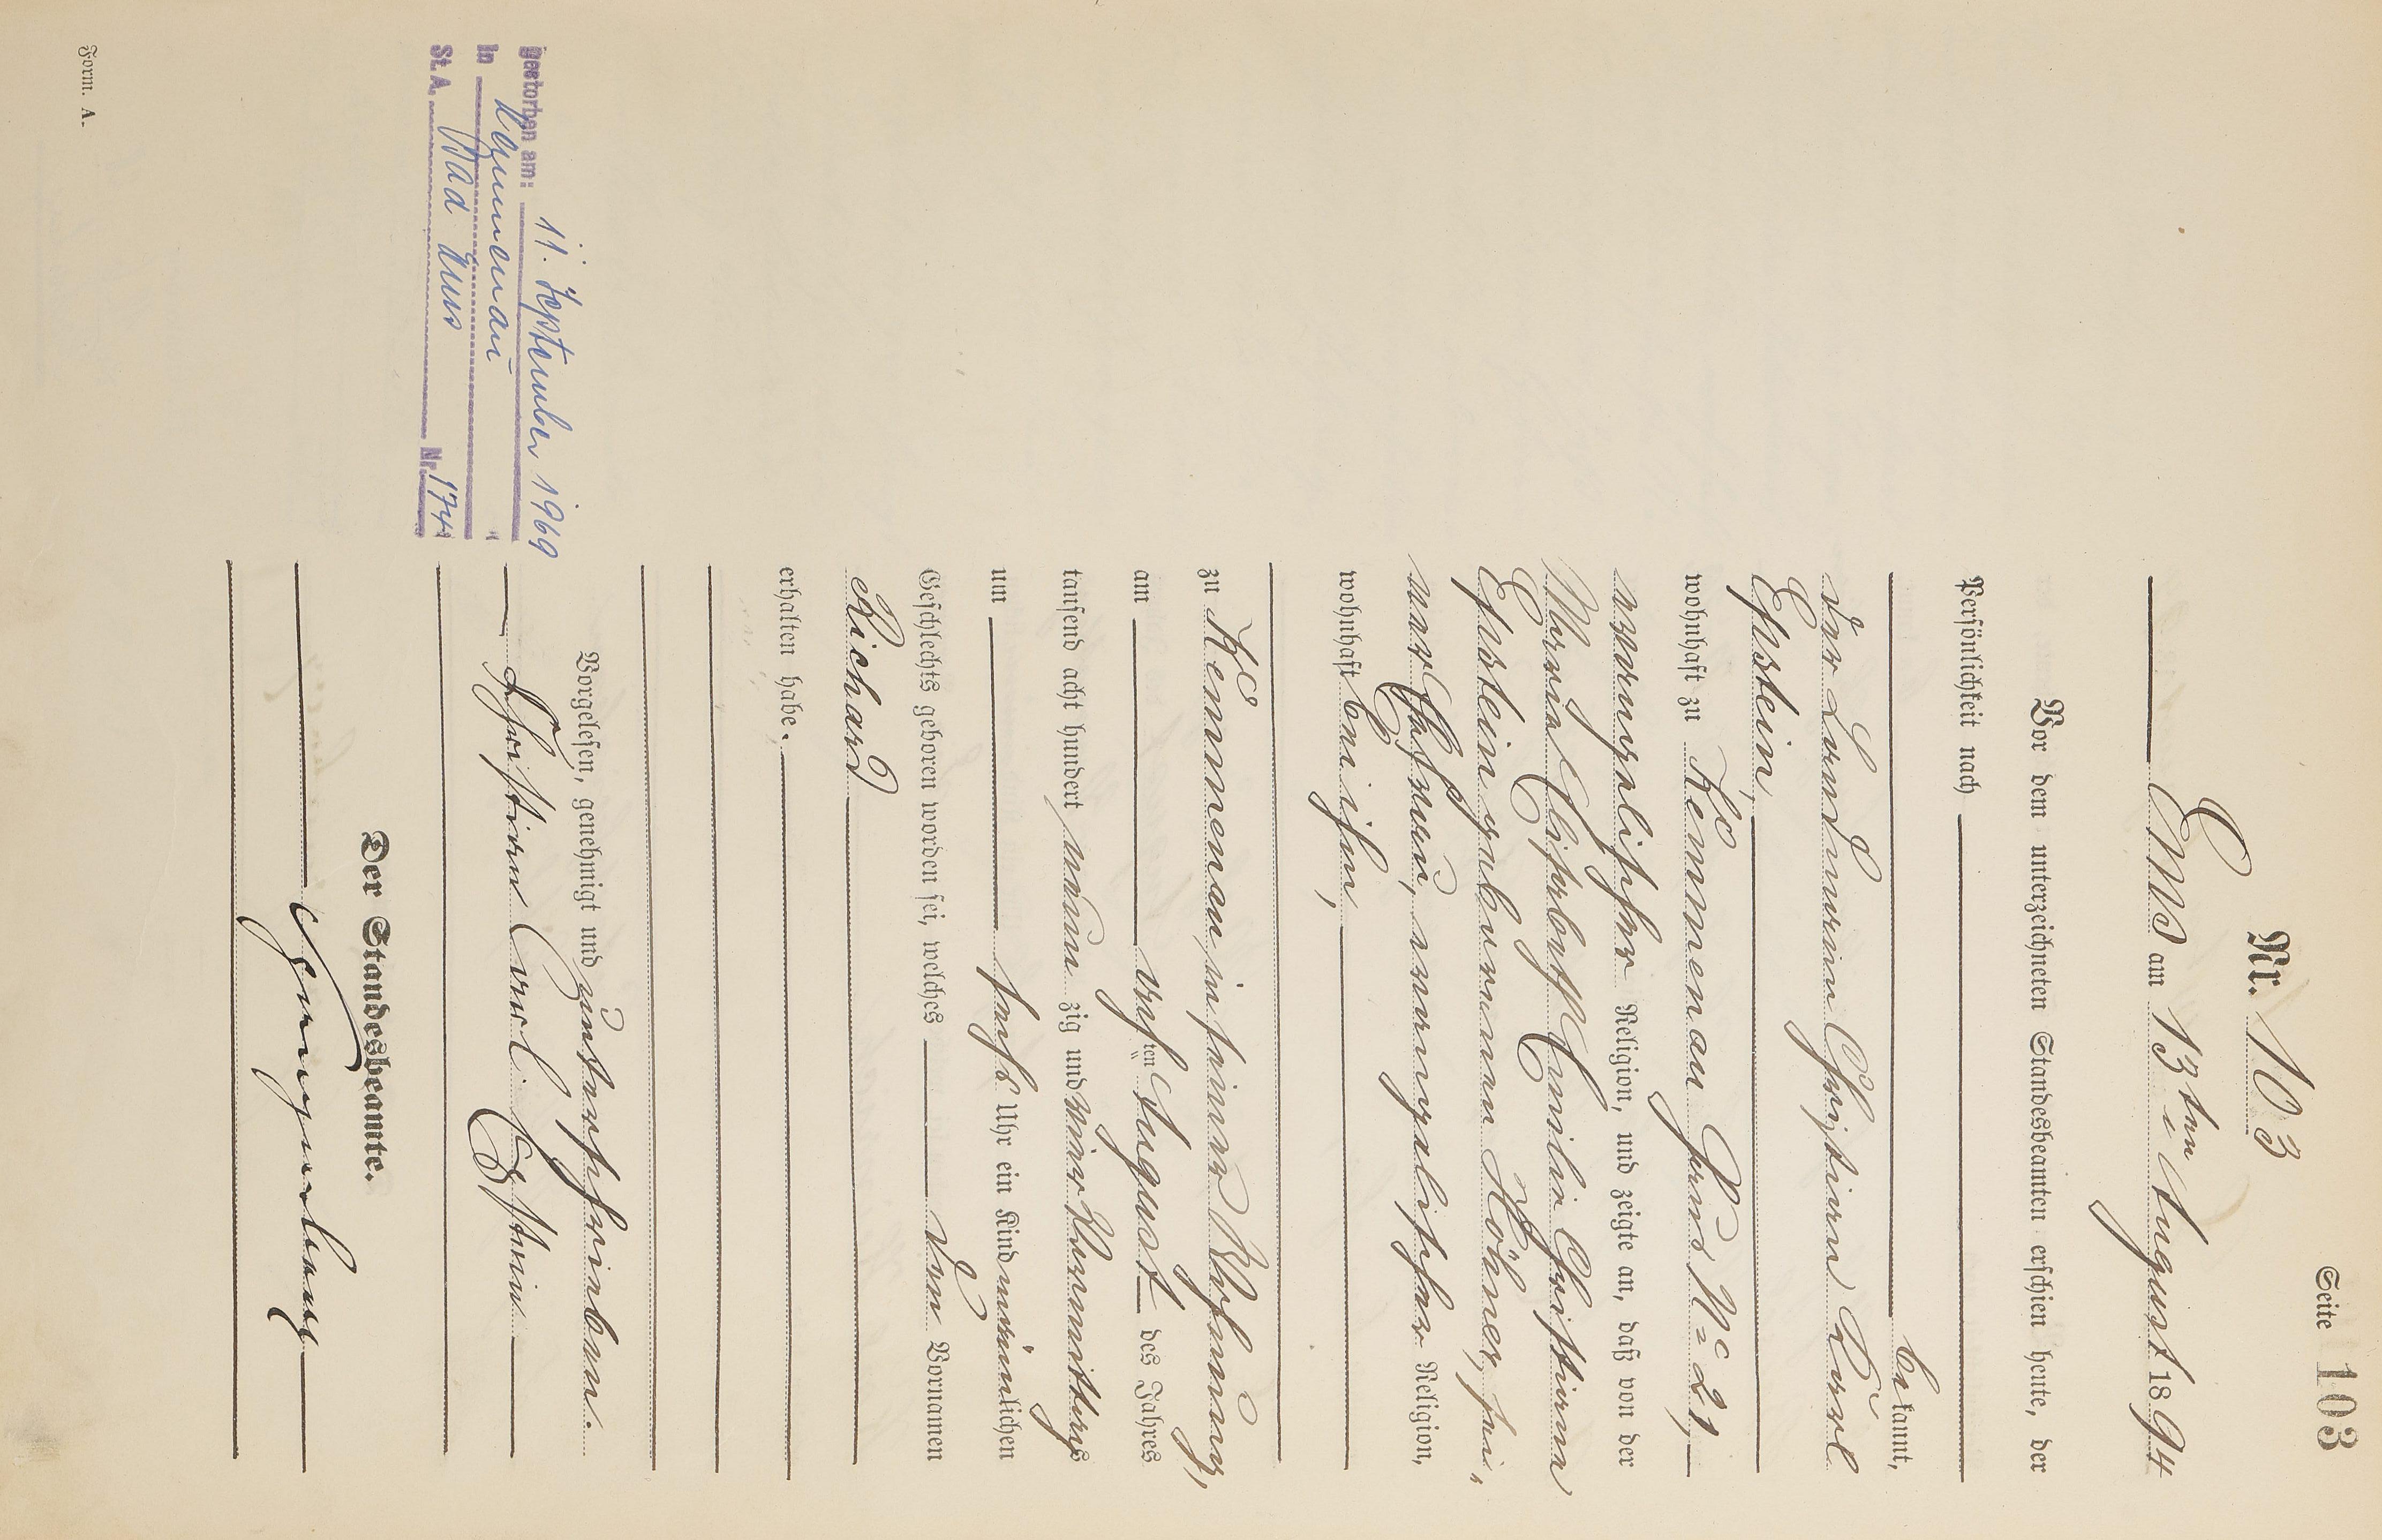 Seite 103
Nr. 103
Ems am 13ten August 1894
Vor dem unterzeichneten Standesbeamten erschien heute, der
Persönlichkeit nach
bekannt,
der Landmann Christian Karl
Epstein,
wohnhaft zu Kemmenau Haus No 21,
evangelischer Religion, und zeigte an, daß von der
Maria Elisabeth Emilie Christiane
Epstein geborenen Höhner, sei⸗
ner Ehefrau, evangelischer Religion,
wohnhaft bei ihm,
zu Kemmenau in seiner Wohnung,
am achten August des Jahres
tausend acht hundert neunzig und vier Vormittags
um sechs Uhr ein Kind männlichen
Geschlechts geboren worden sei, welches den Vornamen
Richard
erhalten habe.
Vorgelesen, genehmigt und unterschrieben.
Christian Carl Epstein
Der Standesbeamte.
gestorben am: 11. September 1969
in Kemmenau
St. A. Bad Ems Nr. 174
Form. A.